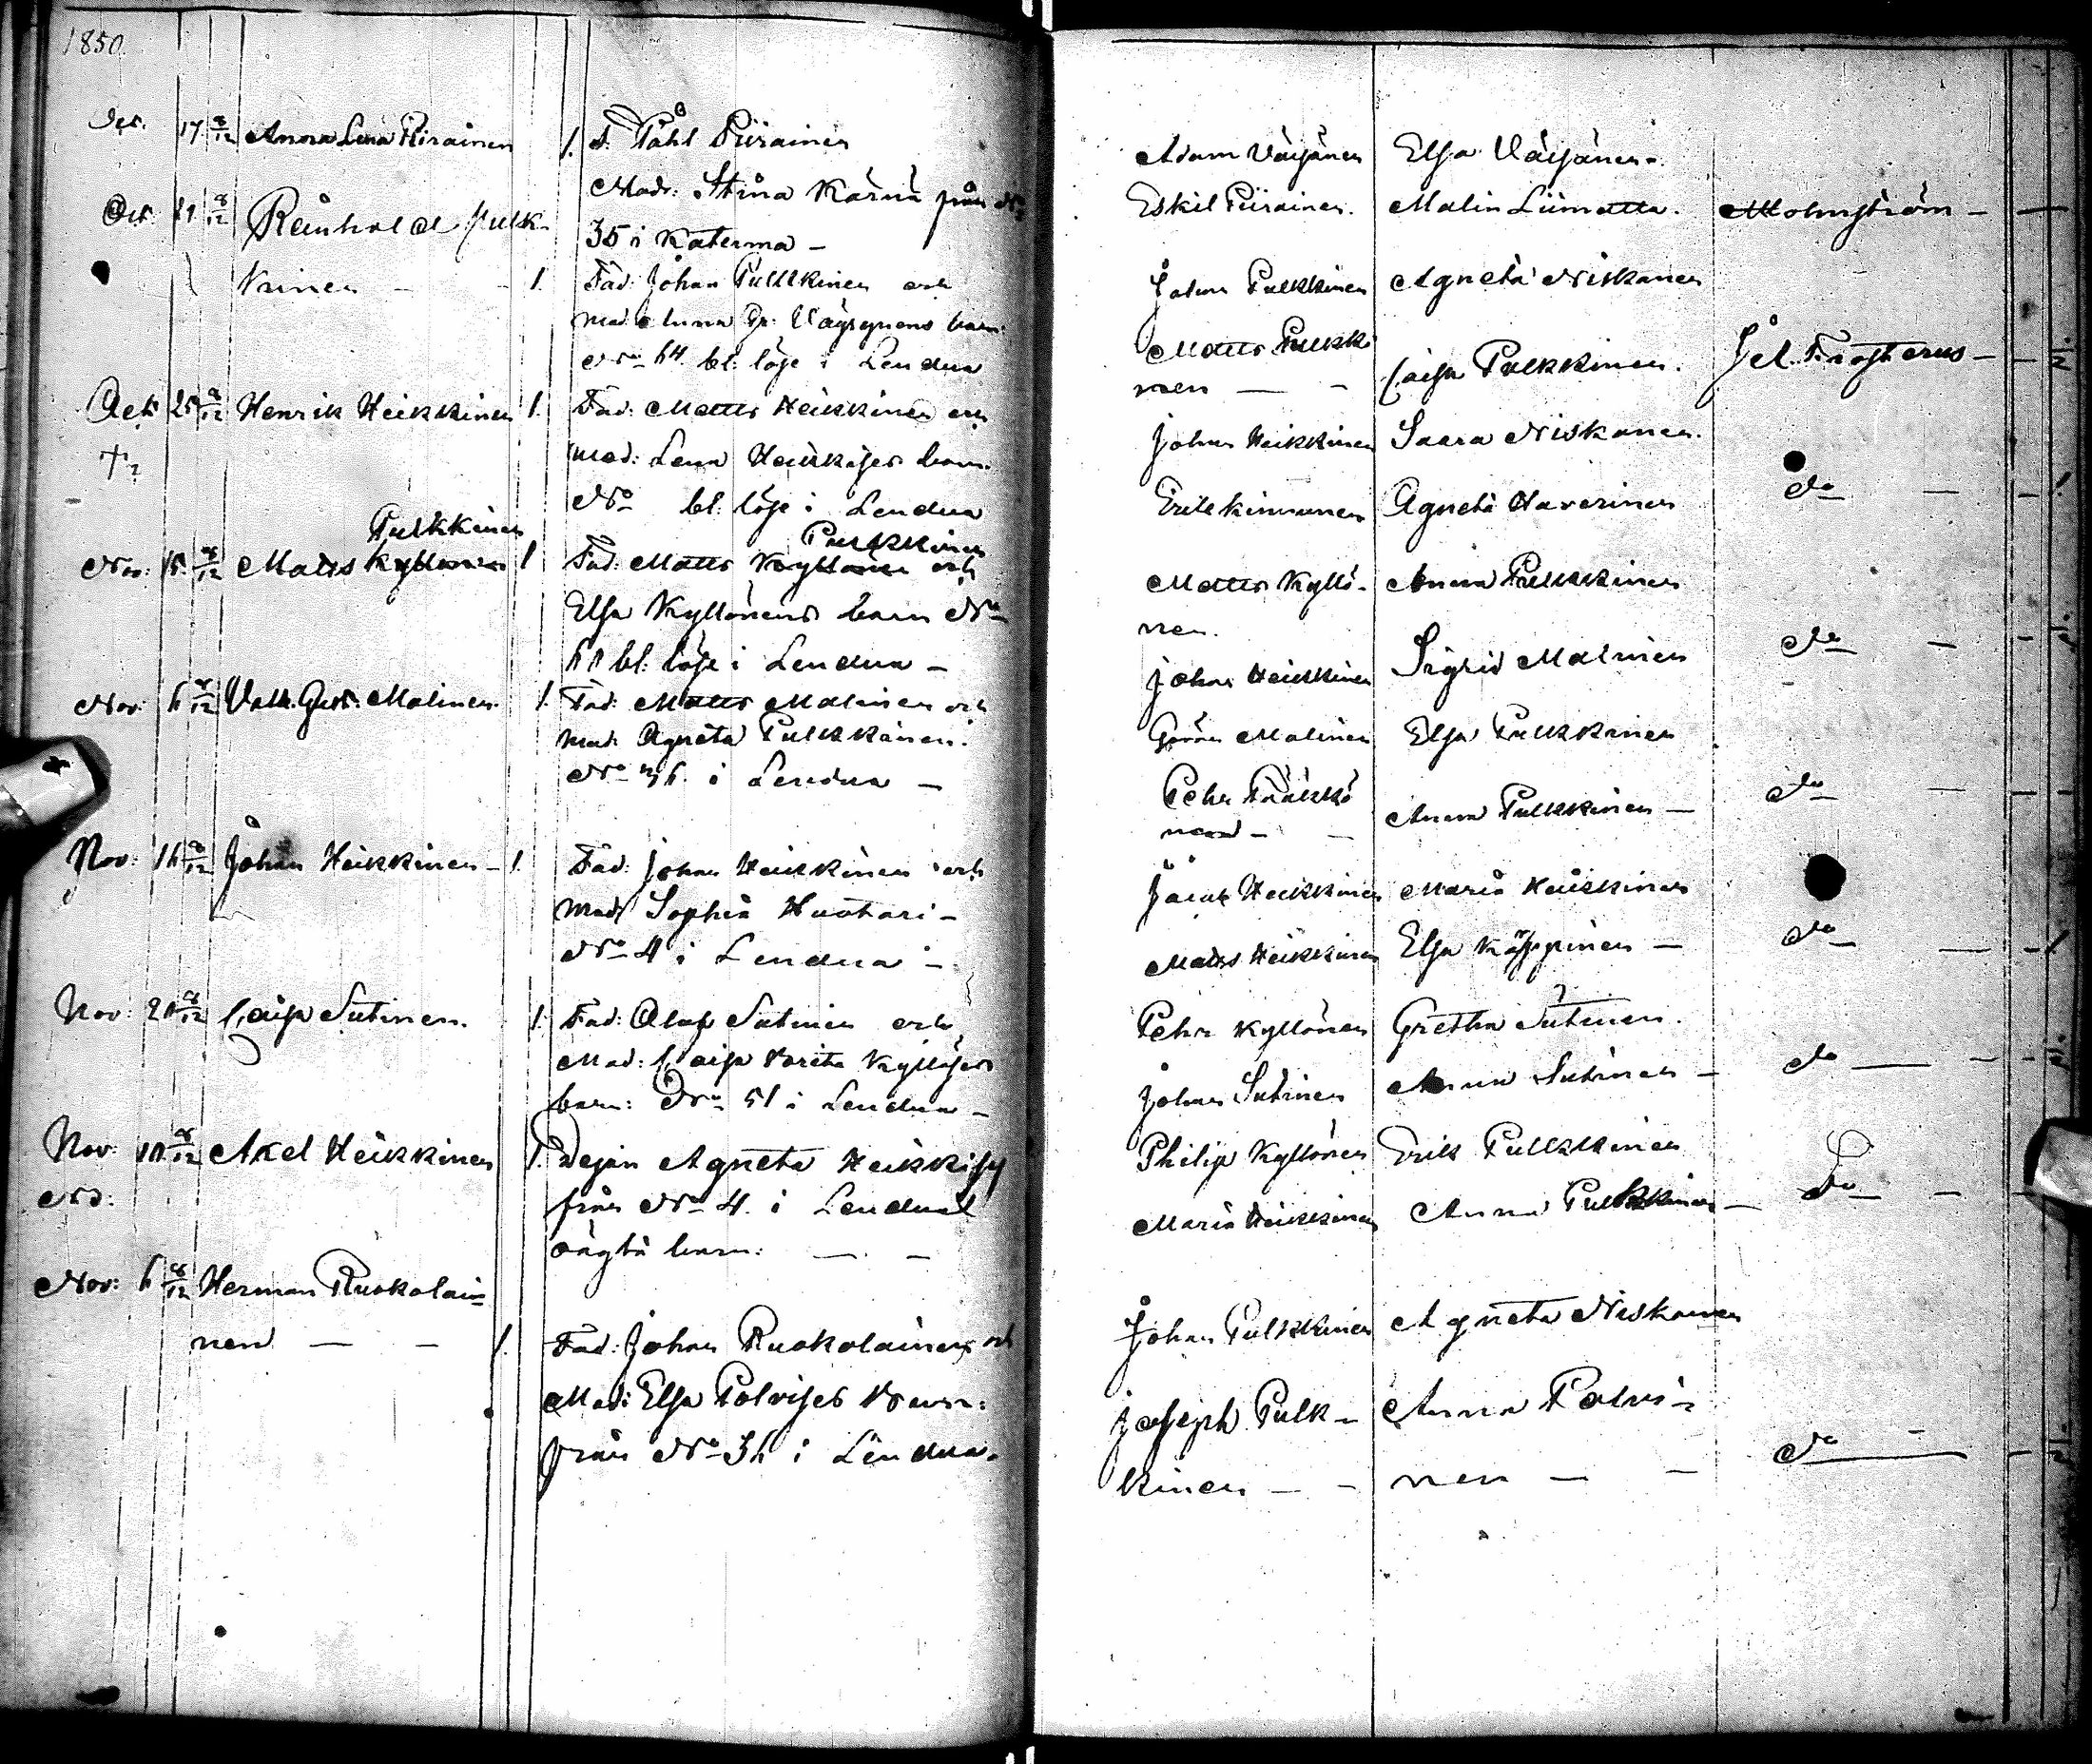 1850.
Oct. 17 8/12 Anna Lena Piirainen 1. F. Påhl Piirainen
Mod: Stina Kärnä från No
35 i Katerma –
Oct. 21 8/12 Reinhold Pulk-
kinen – – 1. Fad: Johan Pulkkinen och
mod: Anna
No 64 bl: löse i Lendua
Oct. 8/12 Henrik Heikkinen 1. Fad: Matts Heikkinen och
mod: Lena Heikkises barn.
No bl: löse i Lendua
Pulkkinen Pulkkinen
Nov: 15 8/12 Matts Kyllönen 1 Fad: Matts Kyllönen och
Elsa Kyllönens barn No
61 bl: löse i Lendua –
Nov. 6 8/12 Malinen. 1. Fad: Matts Malinen och
mod: Agneta Pulkkinen.
No 36. i Lendua –
Nov: 16 8/12 Johan Heikkinen – 1. Fad: Johan Heikkinen och
mod: Sophia Huotari –
No 4 i Lendua –
Nov: 8/12 Caisa Sutinen. 1. Fad: Olof Sutinen och
Mod: Caisa Brita Kyllöses
barn: No 51 i Lendua –
Nov: 8/12 Axel Heikkinen 1. Pigan Agneta Heikkisy
från No 4. i Lendua
oägta barn: – –
Nov: 6 8/12 Herman Ruokolai-
nen – – 1. Fad: Johan Ruokolainen och
Mod: Elsa Polvises barn:
från No 36 i Lendua.
Adam Väisänen Elsa Väisänen.
Eskil Piirainen. Malin Liimatta. Molmström –
Johan Pulkkinen Agneta Niskanen
Matts Pulkki
nen – – Caisa Pulkkinen. Frosterus –
Johan Heikkinen Saara Niskanen.
Erik Kinnunen Agneta Haverinen do –
Matts Kyllö- Anna Pulkkinen
nen.
Johan Heikkinen Sigrid Malinen do –
Göran Malinen Elsa Pulkkinen
Pehr Pääkkö
nen – – Anna Pulkkinen – do –
Jacob Heikkinen Maria Heikkinen
Matts Heikkinen Elsa Köppinen – do –
Pehr Kyllönen Gretha Sutinen.
Johan Sutinen Anna Sutinen – do –
Philip Kyllönen Erik Pulkkinen
Maria Heikkinen Anna Pulkkinen – Do –
Johan Pulkkinen Agneta Niskanen
Joseph Pulk- Anna Polvi-
kinen – – nen – – do –